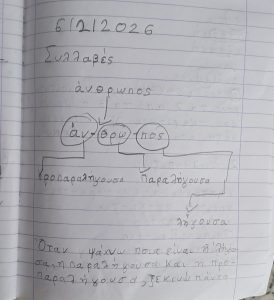 6/2/2026
Συλλαβές
άνθρωπος
άν-θρω-πος
προπαραλήγουσα παραλήγουσα
λήγουσα
Όταν ψάχνω ποια είναι η λήγου-
σα, η παραλήγουσα και η προ-
παραλήγουσα, ξεκινώ πάντα